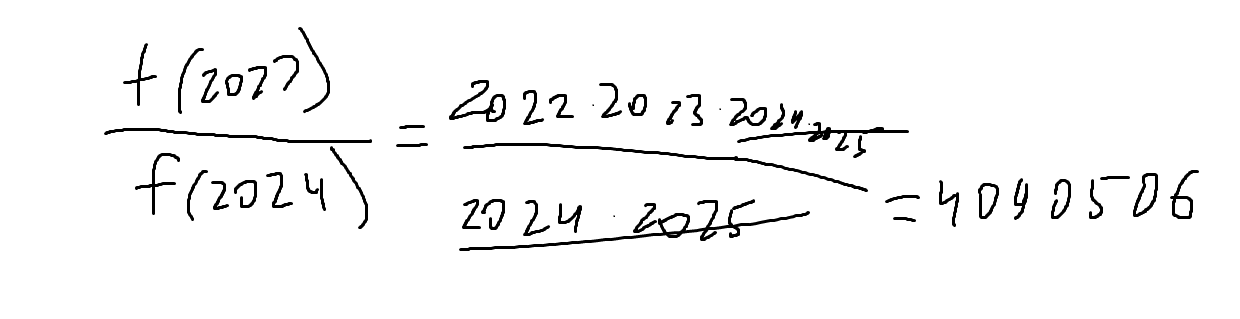 f(2022)
f(2024)
=
2022·2023·2024·2025
2024·2025
=4090506